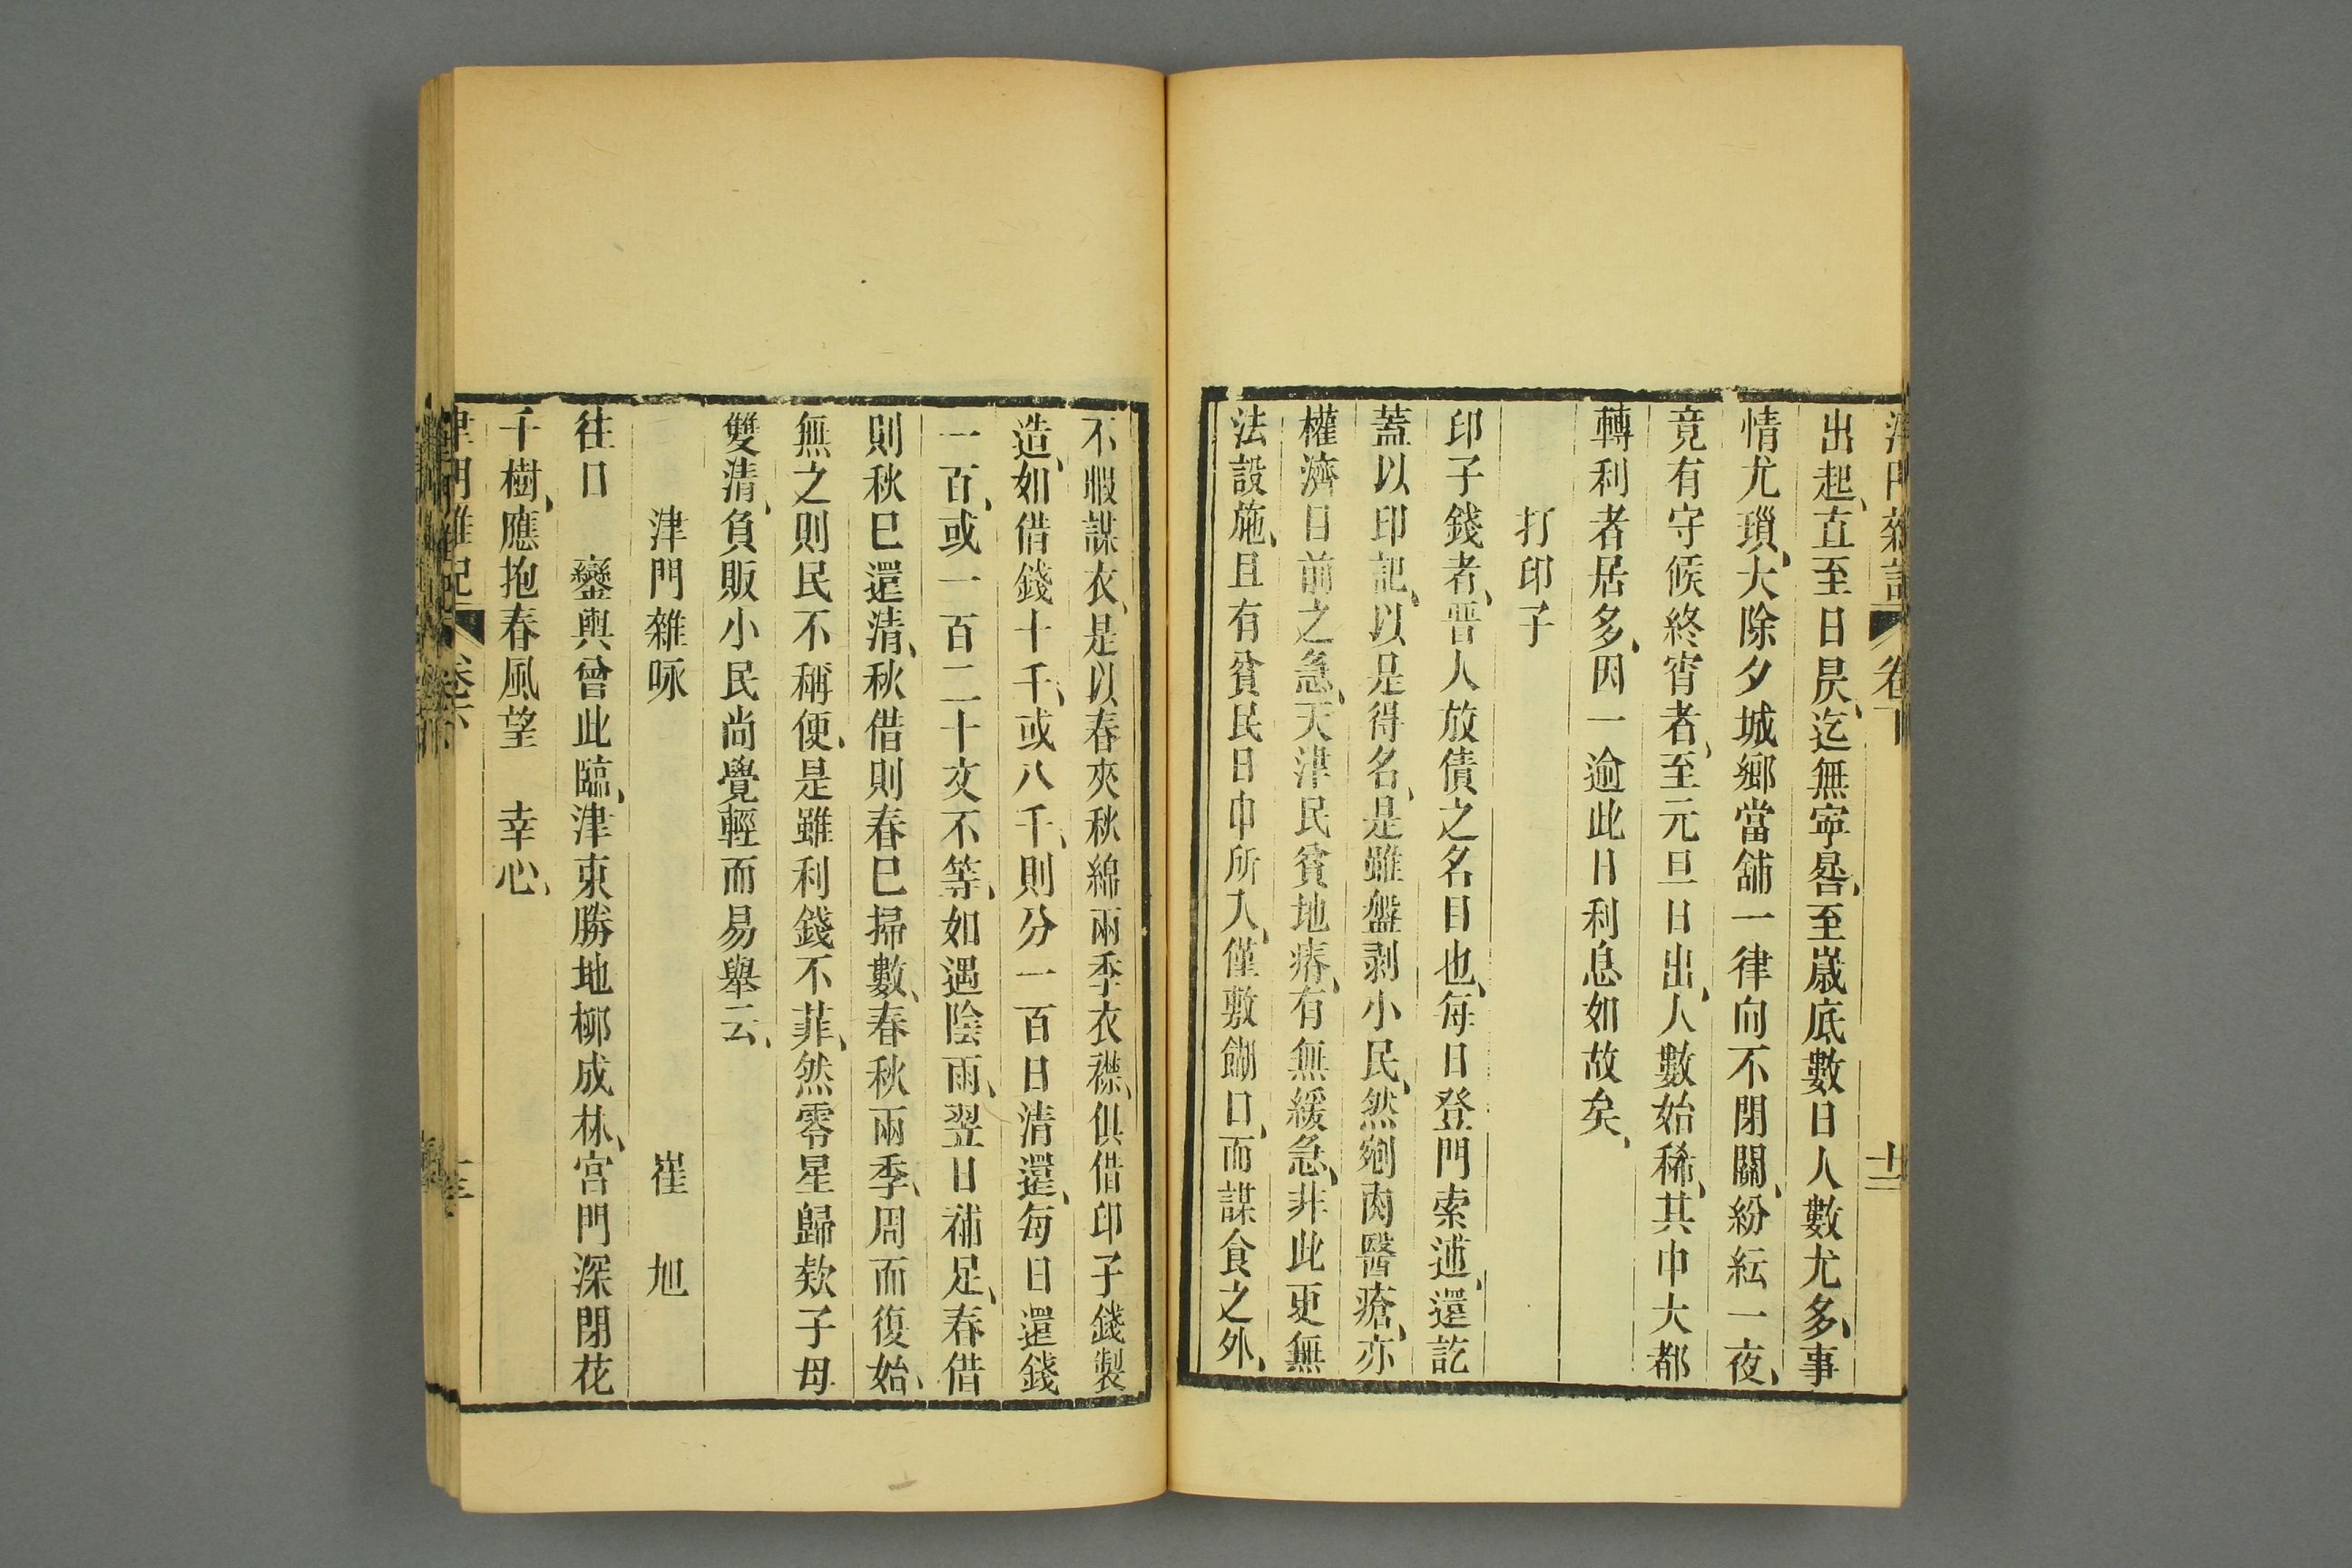 津門雜記 卷下 十二
出起、直至日昃、迄無寧晷、至歲底數日人數尤多、事
情尤瑣、大除夕城鄉當舖一律向不閉關、紛紜一夜、
竟有守候終宵者、至元旦日出、人數始稀、其中大都
轉利者居多、因一逾此日利息如故矣、
打印子
印子錢者、晋人放債之名目也、每日登門索逋、還訖
蓋以印記、以是得名、是雖盤剥小民、然剜肉醫瘡、亦
權濟目前之急、天津民貧地瘠、有無緩急、非此更無
法設施、且有貧民日中所入、僅敷餬口、而謀食之外、
不暇謀衣、是以春夾秋綿兩季衣襟、俱借印子錢製
造、如借錢十千、或八千、則分一百日清還、每日還錢
一百、或一百二十文不等、如遇陰雨、翌日補足、春借
則秋巳還清、秋借則春巳掃數、春秋兩季、周而復始、
無之則民不稱便、是雖利錢不菲、然零星歸欵子母
雙清、負販小民尚覺輕而易舉云、
津門雜咏 崔旭
往日 鑾輿曾此臨、津東勝地柳成林、宮門深閉花
千樹、應抱春風望 幸心、
津門雜記 卷下 十三